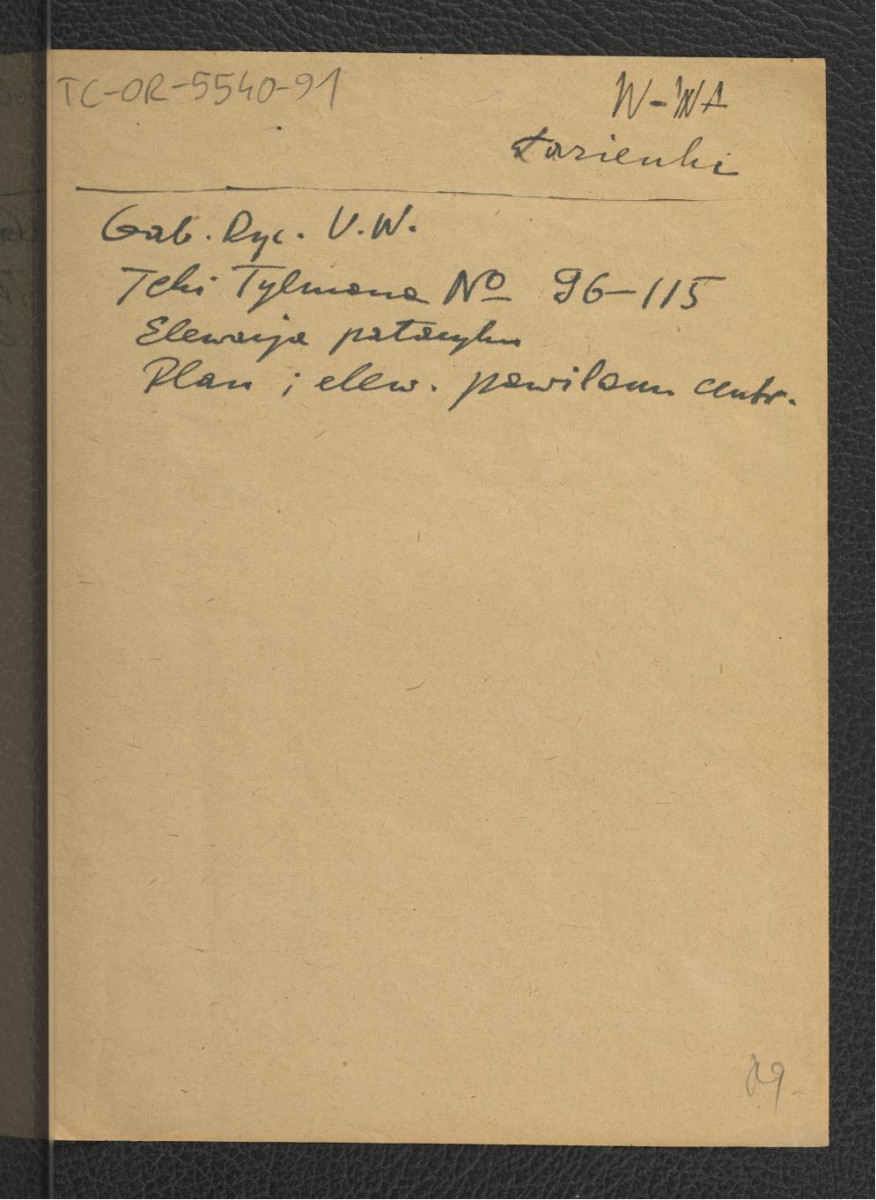 TC-OR-5540-91
W-WA
Łazienki
Gab. Ryc. U.W.
Teki Tylmana No 96-115
Elewacja pałacyku
Plan i elew. pawilonu centr.